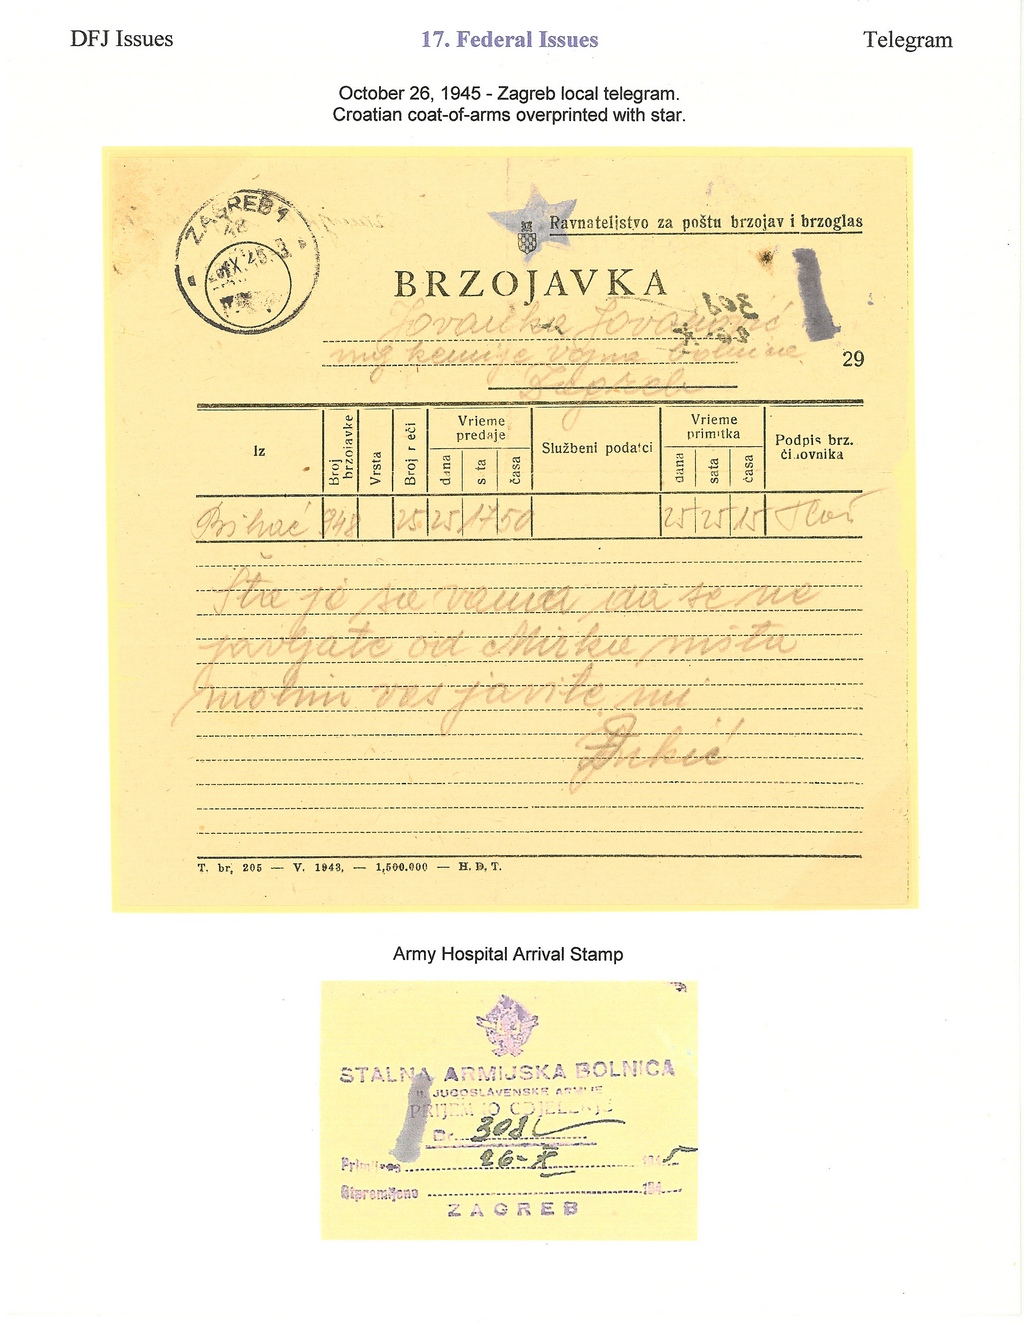 DFJ Issues 17. Federal Issues Telegram
October 26, 1945 - Zagreb local telegram.
Croatian coat-of-arms overprinted with star.
ZAGREB 1
Ravnateljstvo za poštu brzojav i brzoglas
BRZOJAVKA
308
26-X
Jovanka Jovanović
mg kemije vojna bolnice
29
Zagreb
Iz
Broj brzojavke
Vrsta
Broj reči
Vrieme predaje
dana
sata
časa
Službeni podatci
Vrieme primitka
dana
sata
časa
Podpis brz. činovnika
Bihać 948 25 25 17 50 25 25 15
Šta je sa vama da se ne
javljate od Mirka ništa
molim vas javite mi
T. br. 205 — V. 1943. — 1,500.000 — H. D. T.
Army Hospital Arrival Stamp
STALNA ARMIJSKA BOLNICA
II. JUGOSLAVENSKE ARMIJE
PRIJEMNO ODJELENJE
Br. 308
Primljeno 26-X 1945
Otpremljeno 194
ZAGREB